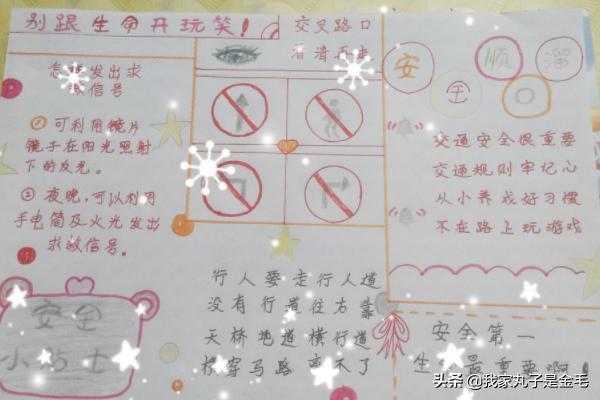 别跟生命开玩笑!
怎样发出求
救信号
① 可利用镜片
镜子在阳光照射
下的反光。
② 夜晚,可以利用
手电筒及火光发出
求救信号。
安全
小贴士
交叉路口
看清再走
行人要走行人道
没有行道往右靠
天桥地道横行道
横穿马路离不了
安全顺口溜
交通安全很重要
交通规则牢记心
从小养成好习惯
不在路上玩游戏
安全第一
生命最重要啊!
头条 @我家丸子是金毛